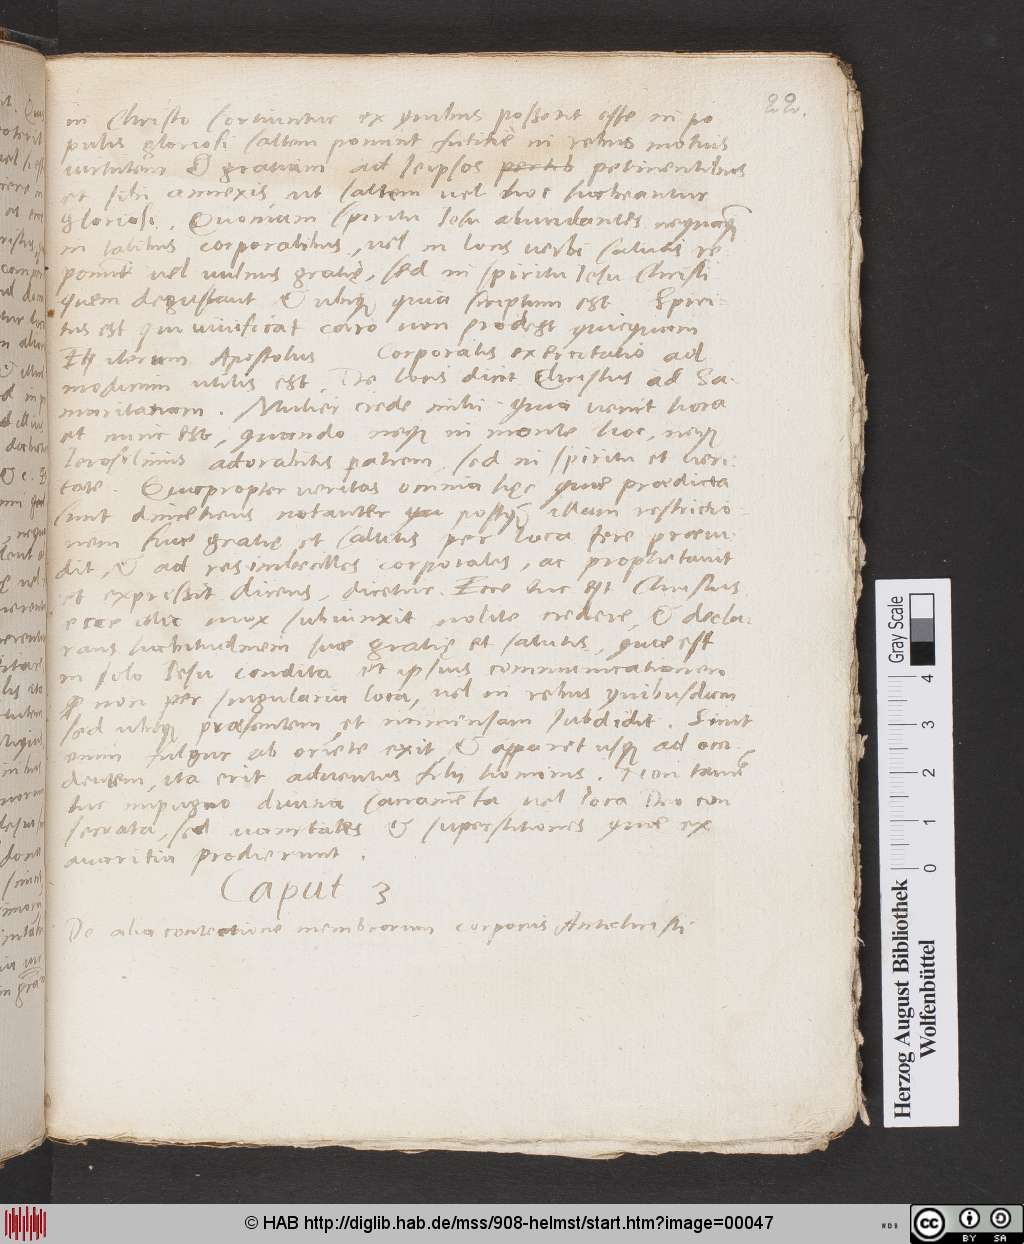 22.
in Christo sortiuntur ex quibus possent esse in po
pulis gloriosi saltem ponunt in rebus
virtutem & gratiam ad seipsos pertinentibus
et sibi annexis, ut saltem vel hoc habeantur
gloriosi. Quoniam spiritu Jesu abundantes nequaq̃
in talibus corporalibus, vel in locis verbi salutis re
ponunt vel gratię, sed in spiritu Jesu Christi
quem degustant & ubiq; quia scriptum est Spiri-
tus est qui vivificat caro non prodest quicquam
Et iterum Apostolus Corporalis exercitatio ad
modicum utilis est. De locis dicit Christus ad Sa-
maritanam. Mulier crede mihi quia venit hora
et nunc est, quando neq; in monte hoc, neq;
Jerosolimis adorabitis patrem, sed in spiritu et veri-
tate. Quapropter veritas omnia hęc quae praedicta
sunt notanter postq̃ illam restrictio-
nem suae gratię et salutis per loca fere praevi-
dit, & ad res imbecilles corporales, ac prophetavit
et expressit dicens, dicetur. Ecce hic est Christus
ecce illic mox subiunxit nolite credere, & decla-
rans suae gratię et salutis, quae est
in solo Jesu condita et ipsius communicationem
non per singularia loca, vel in rebus quibusdam
sed ubiq; praesentem et immensam subdidit. Sicut
enim fulgur ab oriēte exit & apparet usq; ad occi-
dentem, ita erit adventus filij hominis. Non tamē
hic impugno divina sacramēta vel loca Deo con
secrata, sed vanitates & superstitiones quae ex
avaritia prodierunt.
Caput 3
De alia contectione membrorum corporis Antichristi
Herzog August Bibliothek
Wolfenbüttel
Gray Scale
0 1 2 3 4
© HAB http://diglib.hab.de/mss/908-helmst/start.htm?image=00047
WDB
cc BY SA